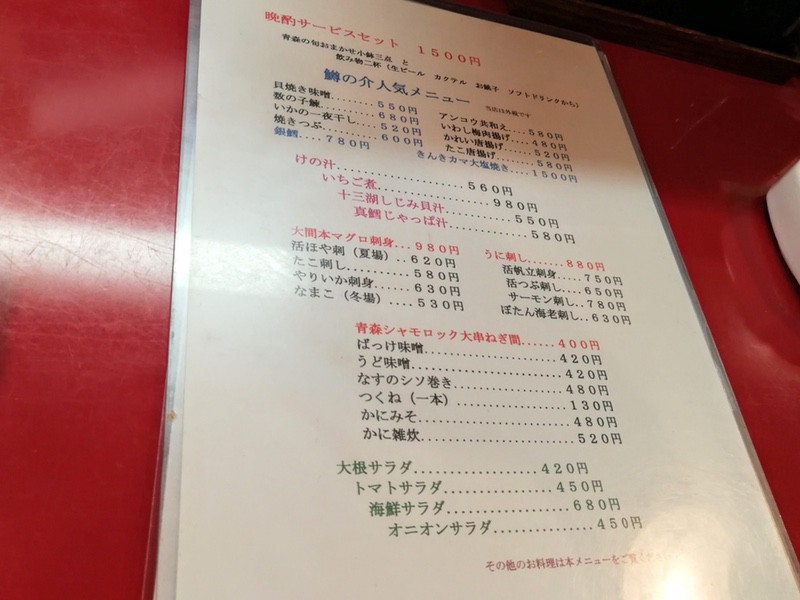 晩酌サービスセット　１５００円
青森の旬おまかせ小鉢三点　と
飲み物二杯（生ビール　カクテル　お銚子　ソフトドリンクから）
鱒の介人気メニュー　当店は外税です
貝焼き味噌........５５０円
数の子鰊...........６８０円
いかの一夜干し....５２０円
焼きつぶ...........６００円
銀鱈....７８０円
アンコウ共和え....５８０円
いわし梅肉揚げ....４８０円
かれい唐揚げ......５２０円
たこ唐揚げ.........５８０円
きんきカマ大塩焼き....１５００円
けの汁....................５６０円
いちご煮.................９８０円
十三湖しじみ貝汁...........５５０円
真鱈じゃっぱ汁.............５８０円
大間本マグロ刺身...９８０円
活ほや刺（夏場）..６２０円
たこ刺し............５８０円
やりいか刺身.......６３０円
なまこ（冬場）....５３０円
うに刺し......８８０円
活帆立刺身....７５０円
活つぶ刺し....６５０円
サーモン刺し..７８０円
ぼたん海老刺し..６３０円
青森シャモロック大串ねぎ間......４００円
ばっけ味噌......................４２０円
うど味噌.........................４２０円
なすのシソ巻き.................４８０円
つくね（一本）.................１３０円
かにみそ.........................４８０円
かに雑炊.........................５２０円
大根サラダ..................４２０円
トマトサラダ................４５０円
海鮮サラダ..................６８０円
オニオンサラダ...............４５０円
その他のお料理は本メニューをご覧ください